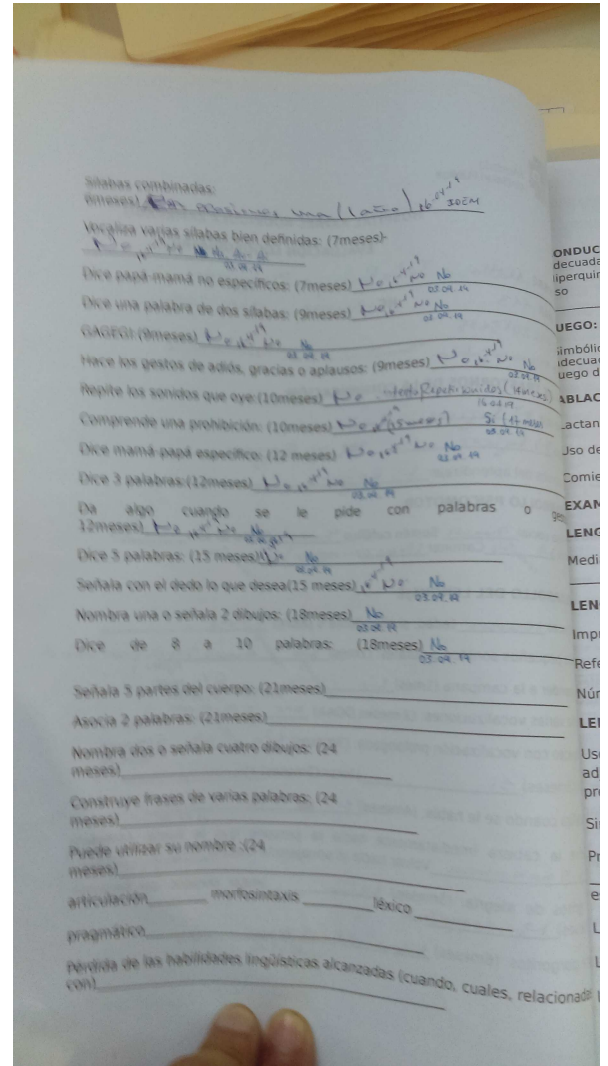 Silabas combinadas:
6meses) una (año) 16-04-19
Vocaliza varias silabas bien definidas: (7meses)
No 16-4-19 No
03.09.19
Dice papá-mamá no especificos: (7meses) No 16-4-19 No No
03.09.19
Dice una palabra de dos sílabas: (9meses) No 16-4-19 No No
03.09.19
GAGEGI:(9meses) No 16-4-19 No No
03.09.19
Hace los gestos de adiós, gracias o aplausos: (9meses) No 16-4-19 No No
03.09.19
Repite los sonidos que oye:(10meses) No
Comprende una prohibición: (10meses) No (15 meses) Si (17 meses
03.09.19
Dice mamá-papá especifico: (12 meses) No 16-4-19 No No
03.09.19
Dice 3 palabras:(12meses) No 16-4-19 No No
03.09.19
Da algo cuando se le pide con palabras o ges
12meses) No 16-4-19 No No
03.09.19
Dice 5 palabras: (15 meses) No No
03.09.19
Señala con el dedo lo que desea(15 meses) 16-4-19 No No
03.09.19
Nombra una o señala 2 dibujos: (18meses) No
03.09.19
Dice de 8 a 10 palabras: (18meses) No
03.09.19
Señala 5 partes del cuerpo: (21meses)
Asocia 2 palabras: (21meses)
Nombra dos o señala cuatro dibujos: (24
meses)
Construye frases de varias palabras: (24
meses)
Puede utilizar su nombre :(24
meses)
articulación morfosintaxis léxico
pragmático
Pérdida de las habilidades lingüísticas alcanzadas (cuando, cuales, relacionada
con)
ONDUC
decuada
iperquin
so
UEGO:
imbólic
decuad
uego d
ABLAC
Lactan
Uso de
Comie
EXAM
LENG
Medi
LEN
Impr
Refe
Núr
LEN
Us
ad
pr
Si
Pr
e
L
L